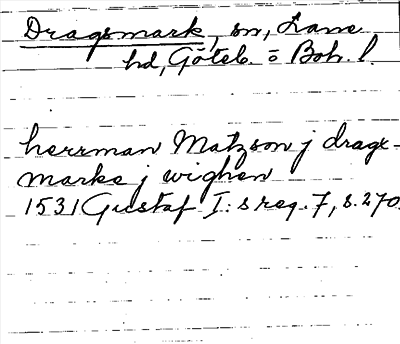 Dragsmark, sn, Lane
hd, Göteb. o Boh. l.
herrman Matzson j drags-
marke j wighen
1531 Gustaf I:s reg. 7, s. 270.